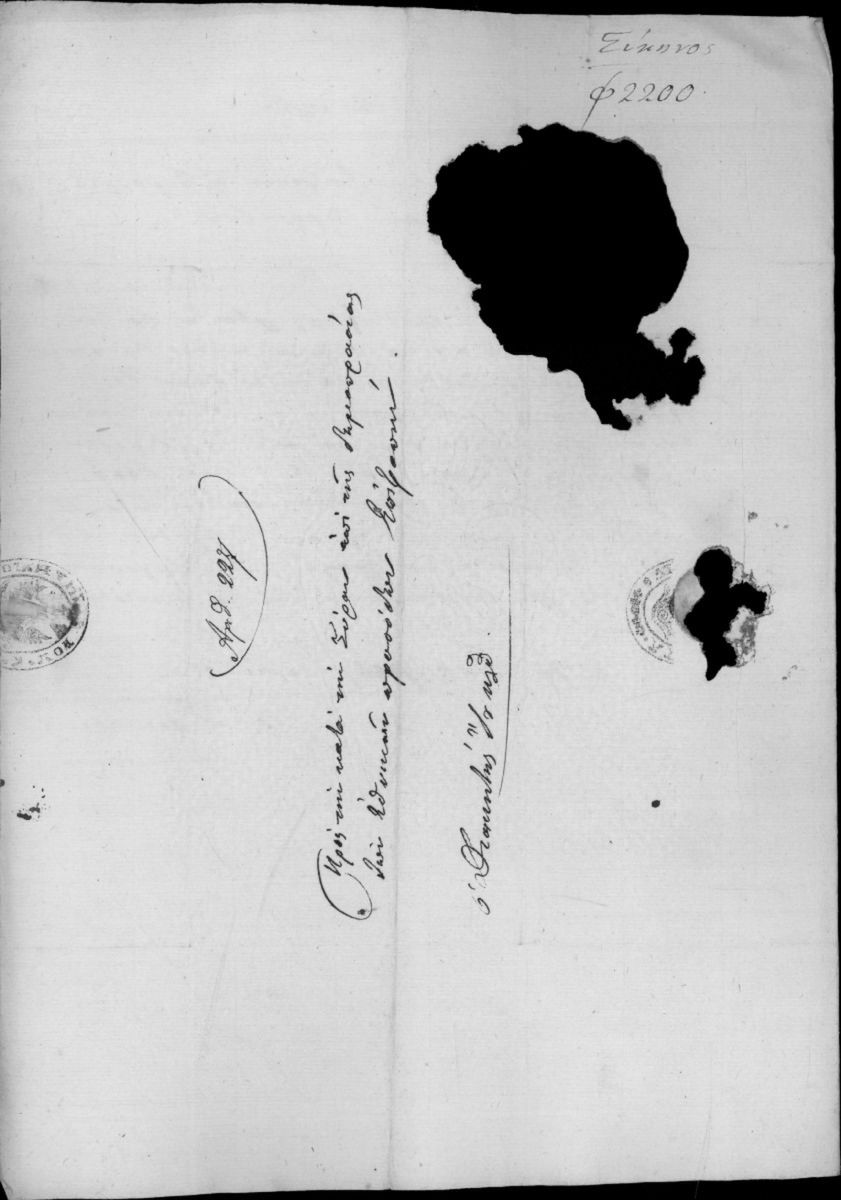 Σίκινος
φ 2200.
Ἀριθ. 227
Πρὸς τὴν κατὰ τὴν Σύραν ἐπὶ τῆς δημοπρασίας
τῶν ἐθνικῶν προσόδων Ἐπιτροπήν.
ὁ Διοικητὴς